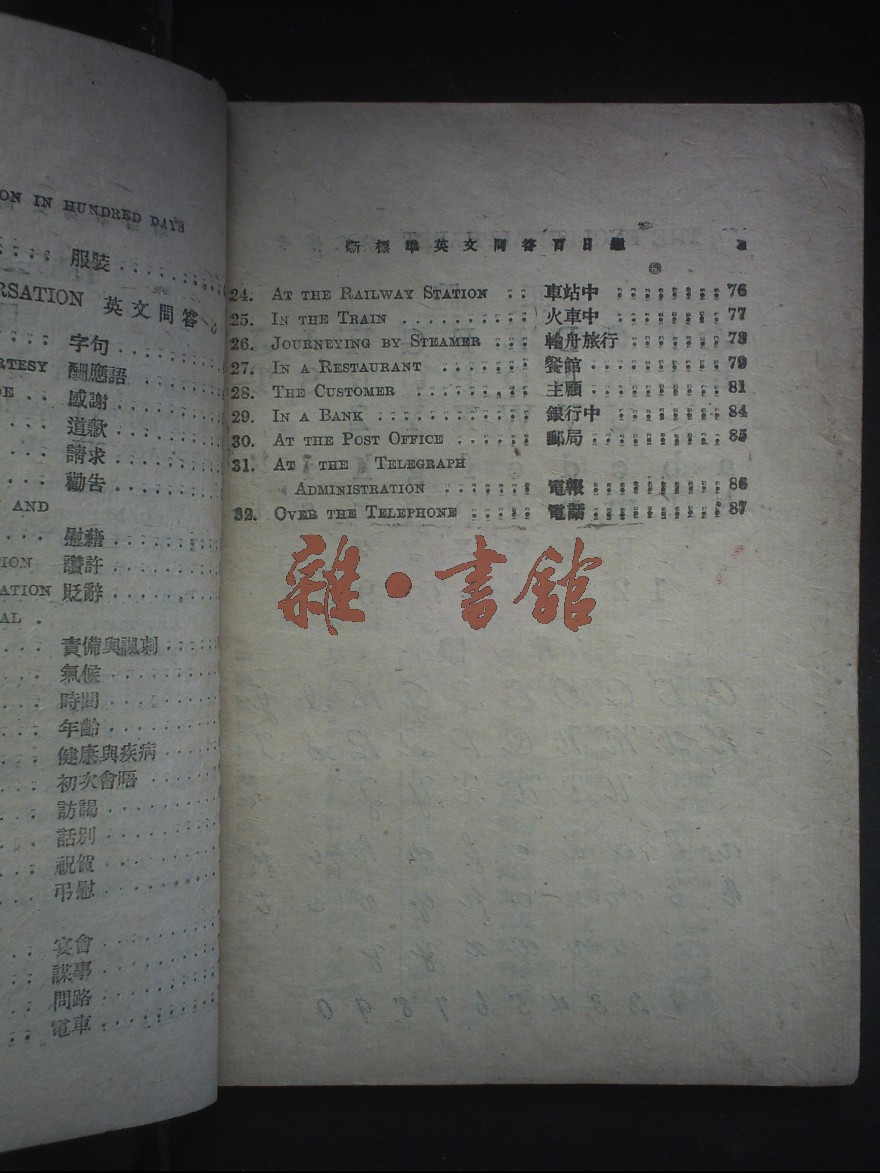 ON IN HUNDRED DAYS
服裝
RSATION 英文問答
字句
RTESY 酬應語
DE 感謝
道歉
請求
勸告
AND
慰藉
ION 讚許
ATION 貶辭
AL
責備與諷刺
氣候
時間
年齡
健康與疾病
初次會晤
訪謁
話別
祝賀
弔慰
宴會
謀事
問路
電車
新標準英文問答百日通
24. AT THE RAILWAY STATION .. 車站中 76
25. IN THE TRAIN 火車中 77
26. JOURNEYING BY STEAMER 輪舟旅行 78
27. IN A RESTAURANT 餐館 79
28. THE CUSTOMER 主顧 81
29. IN A BANK 銀行中 84
30. AT THE POST OFFICE 郵局 85
31. AT THE TELEGRAPH
ADMINISTRATION 電報 86
32. OVER THE TELEPHONE 電話 87
雜·書館